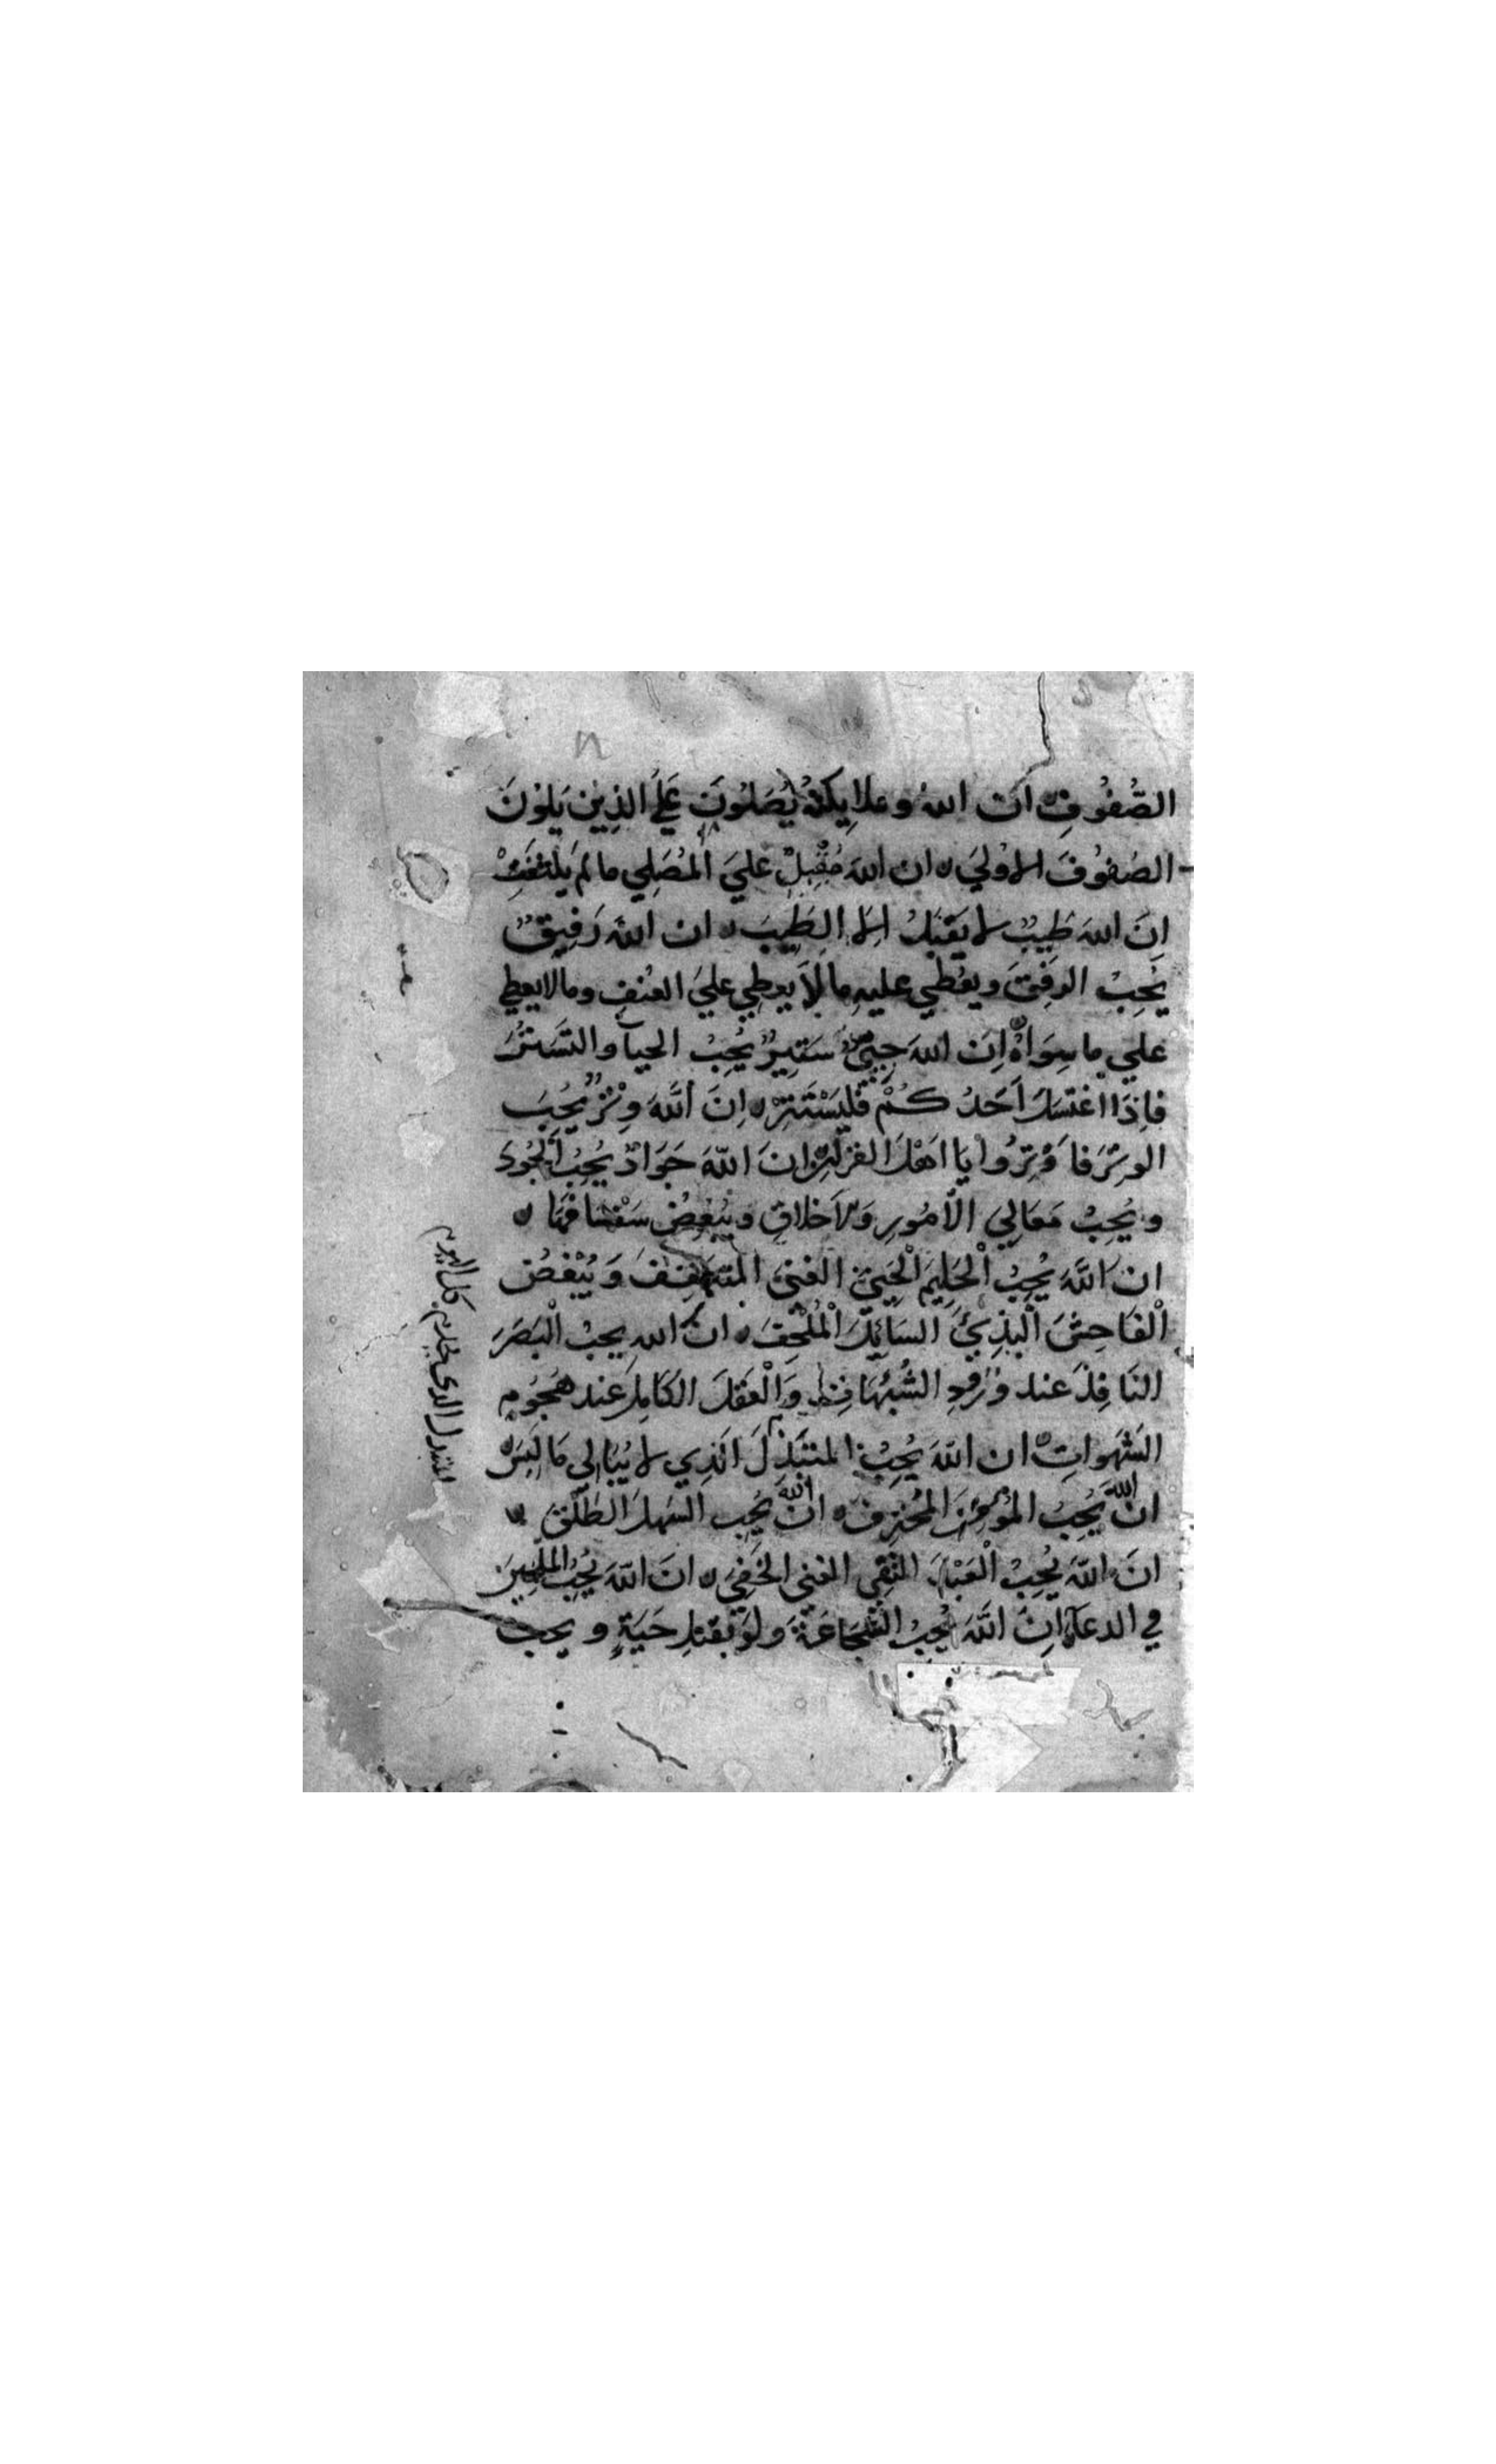 الصُّفُوفِ ان اللهَ وملايكتهُ يُصَلُونَ عَلَي الذِين يَلوُنَ
الصُفوُفَ الاوُليَ ان اللهَ مُقْبِلٌ عليَ المُصَلِي مالم يلتفتْ
اِنَ اللهَ طَيِبٌ لا يَقْبَلُ الا الطَيِبَ ان اللهَ رَفِيقٌ
يُحِبُ الرفقَ ويعُطي عليهِ ما لاَ يعطِي عليَ العُنفِ ومالا يعطي
علي ما سِوَاهُ اِنَ اللهَ حييٌ سَتِيرٌ يُحِبُ الحيآ والتَسَتُرَ
فاِذَا اغتسَلَ اَحَدُ كُمْ فليَسْتَتِرْ اِنَ اللَّهَ وِتْرٌ يُحِبَ
الوِتْرَ فاَوْتِرُوا يَا اهْلَ القرانِ انَ اللّهَ جَوَادٌ يُحِبُ الْجُودَ
ويُحِبُ مَعَالِيَ الاُمُورِ وَالاَخلاقِ ويُبْغِضُ سَفْسَافَهَا
ان اللَّهَ يُحِبُ الْحَلِيمَ الْحَيِيَ الغنىَ المتعَفِفَ وَيُبْغِضُ
الْفَاحِشَ الْبَذِيَ السَايِلَ الْمُلْحِفَ ان الله يحبُ الْبَصَرَ
النَافِذَ عند وُرُودِ الشُبُهَاتِ وَالْعَقَلَ الكَامِلَ عَند هُجُومِ
الشَهَواتِ ان اللّهَ يُحِبُ المتَبَذِلَ الَذِي لا يُبَالِي مَا لَبِسَ
انَ اللَّهَ يُحِبُ المُؤمِنَ المُحْتَرِفَ انَ اللَّهَ يُحِب السَهلَ الطَلْقَ
انَ اللّهَ يُحِبُ الْعَبْدَ التَقِي الغَنى الخَفِيَ انَ اللّهَ يُحِبُ الملحينَ
في الدعآ اِنَ اللَّهَ يُحِبُ الشَجَاعَةَ وَلَوْ بقَتلِ حَيَةٍ ويحب